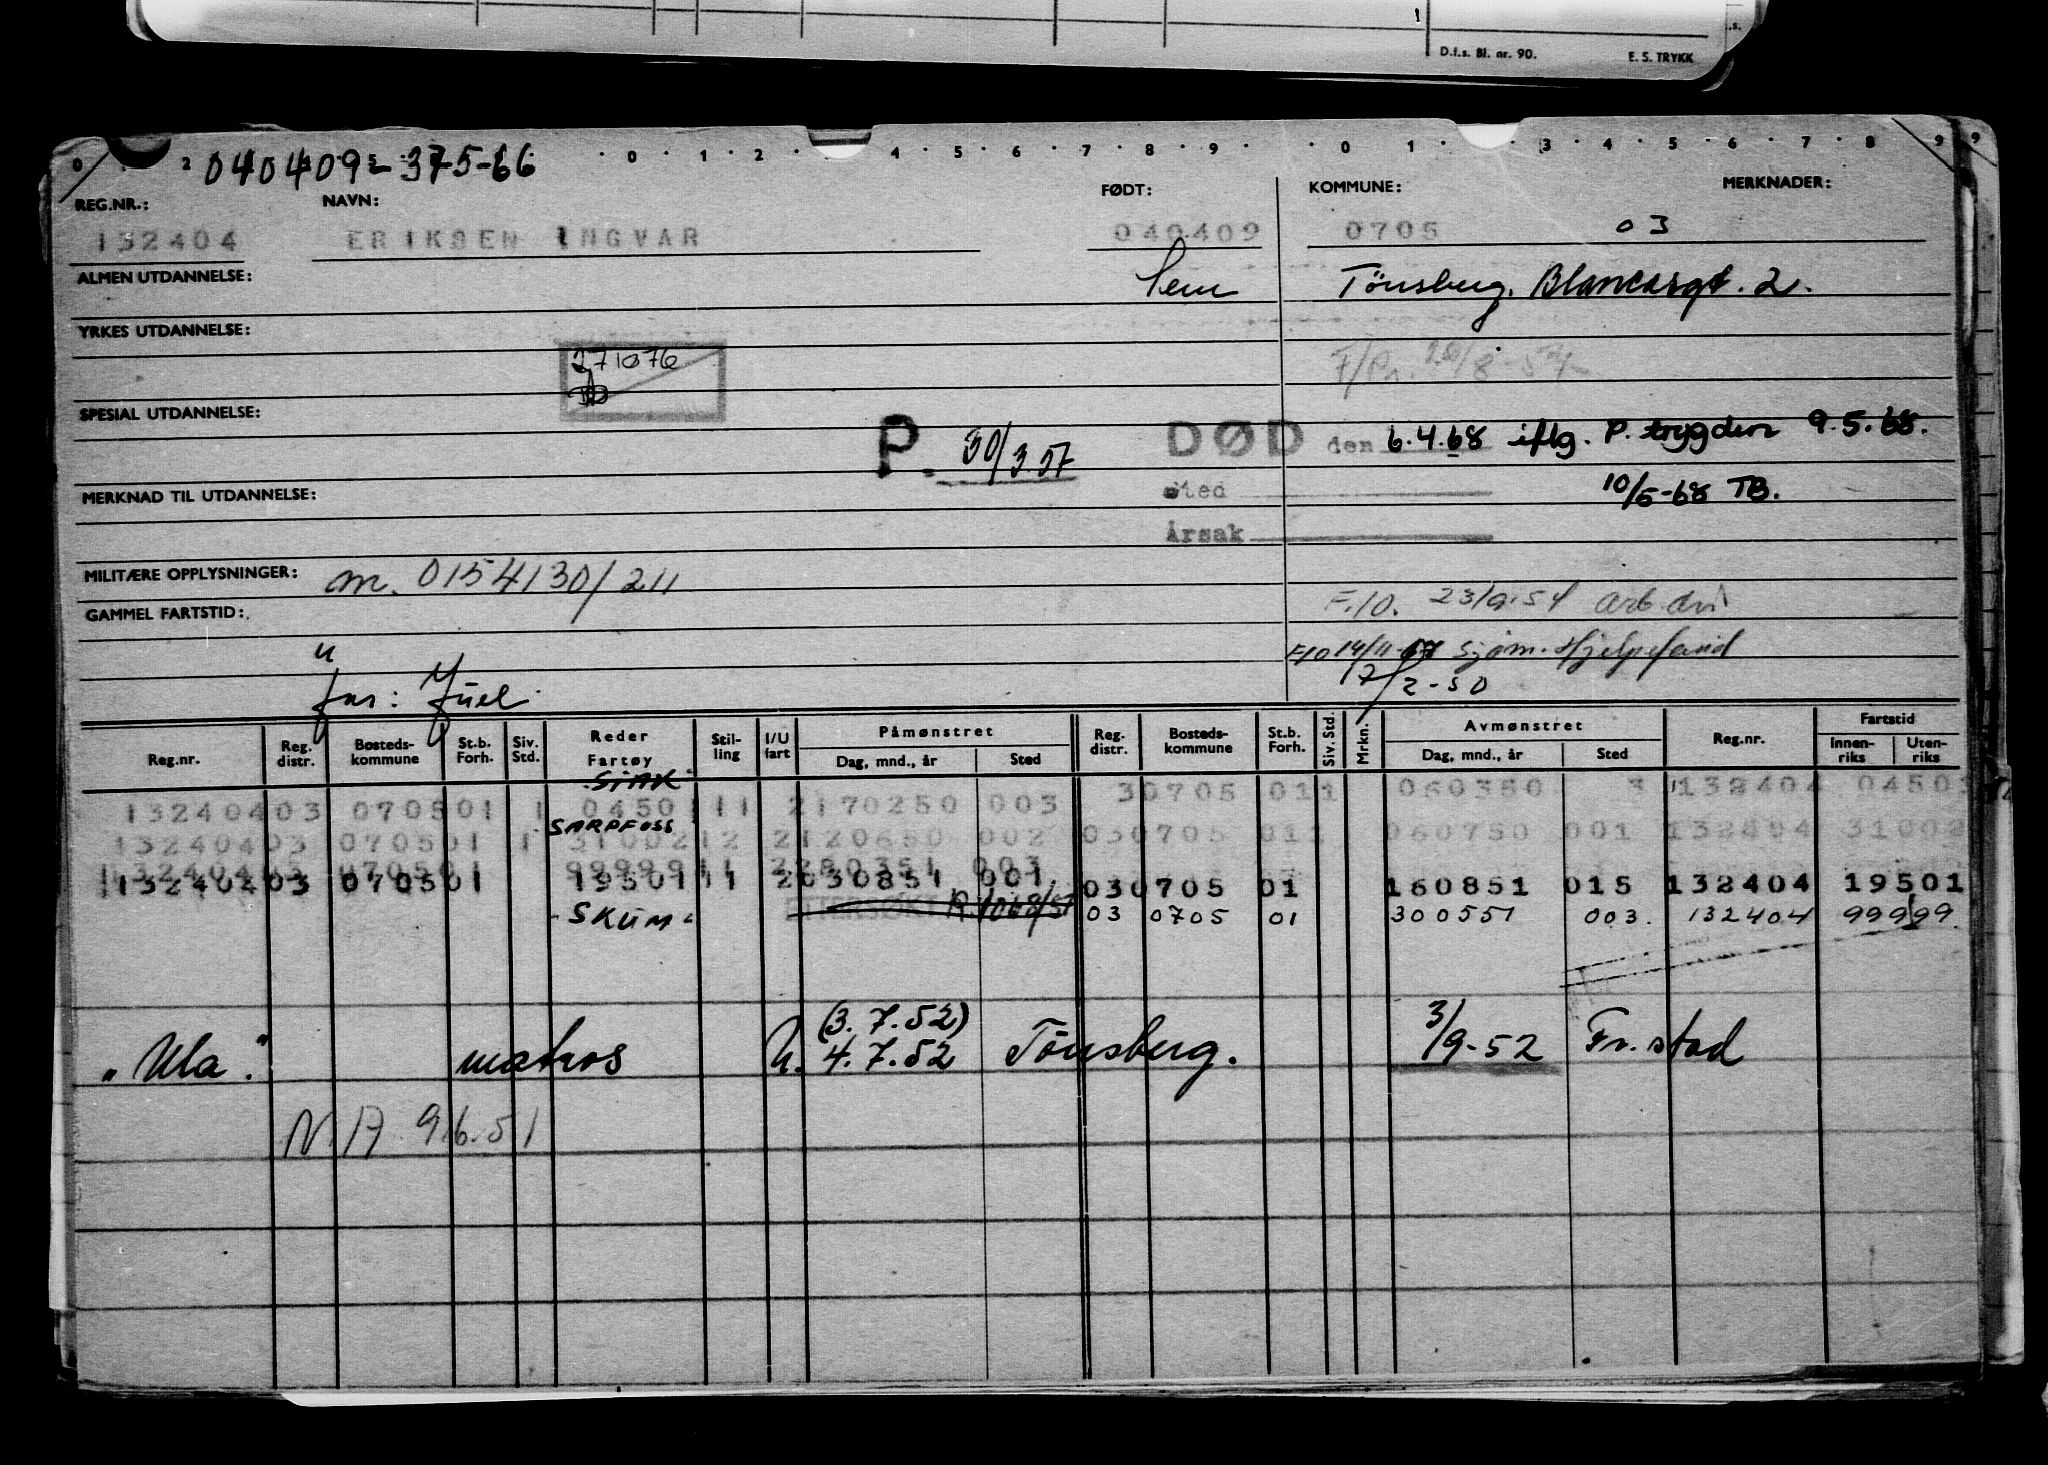 D.f.s. Bl. nr. 90. E. S. TRYKK
040409-375-66
REG.NR.: NAVN: FØDT: KOMMUNE: MERKNADER:
132404 ERIKSEN INGVAR 040409 0705 03
ALMEN UTDANNELSE: Sem Tönsberg. Blancasgt. 2.
YRKES UTDANNELSE:
271076
SPESIAL UTDANNELSE:
P. 30/3.57 DØD den 6.4.68 iflg. P. trygden 9.5.68.
Sted 10/5-68 TB.
MERKNAD TIL UTDANNELSE:
Årsak
MILITÆRE OPPLYSNINGER: m. 0154130/211
GAMMEL FARTSTID: F.10. 23/9.54
F10 14/11-67 Sjøm. Hjelpefond
far: Juel 17/2-50
Reg.nr. Reg. distr. Bosteds-kommune St.b. Forh. Siv. Std. Reder Fartøy Stil-ling I/U fart Påmønstret Dag, mnd., år Sted Reg. distr. Bosteds-kommune St.b. Forh. Siv. Std. Mrkn. Avmønstret Dag, mnd., år Sted Reg.nr. Fartstid Innen-riks Uten-riks
132404 03 0705 01 1 0450 11 2 170250 003 30705 011 060350 3 132404 0450
SARPFOSS
132404 03 0705 01 1 31002 12 2 120650 002 030705 011 060750 001 132404 31002
132404 03 0705 01 99999 11 2 280351 003
132404 03 0705 01 19501 11 2 030851 001 030705 01 160851 015 132404 19501
- SKUM - ETTERSØKT 03 0705 01 300551 003. 132404 99999
(3.7.52)
"Ula". matros U. 4.7.52 Tönsberg. 3/9-52 Fr.stad
N.17 9.6.51